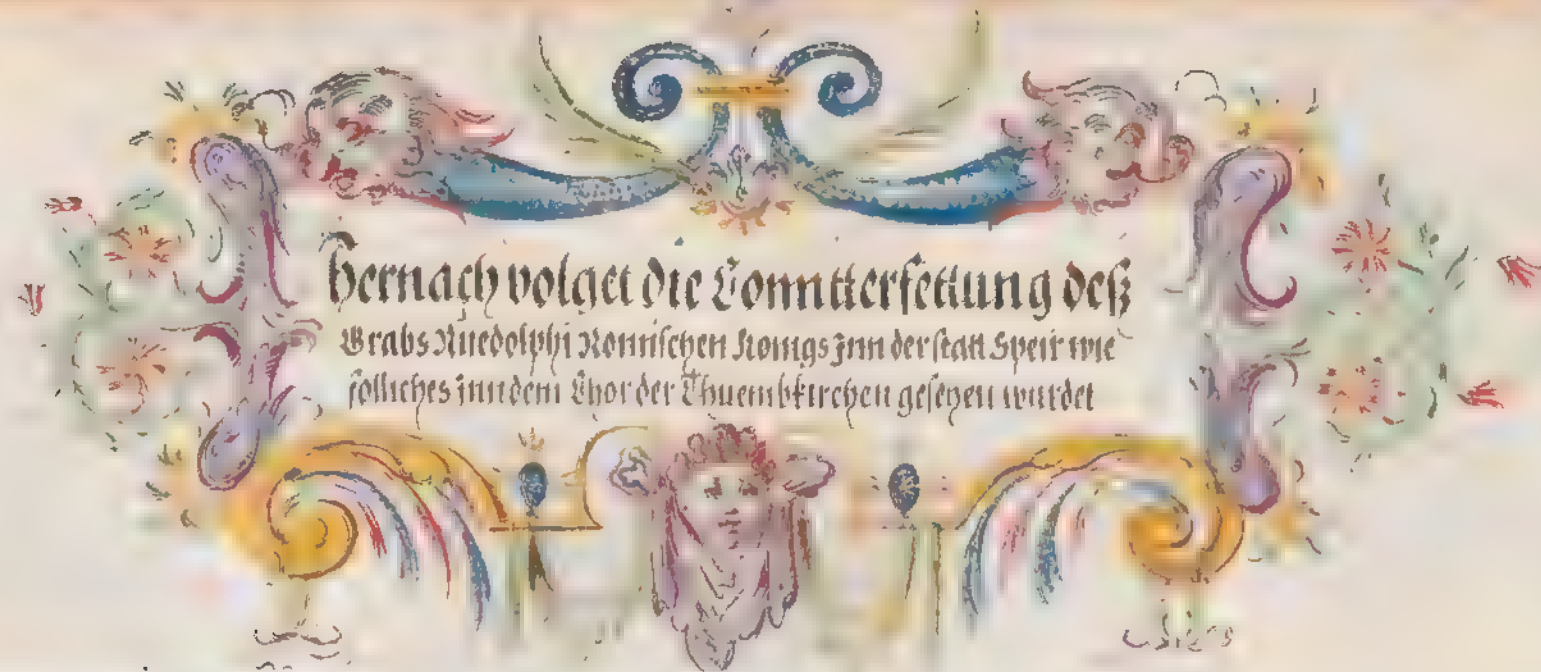 Hernach volget die Conntterfettung deß
Grabs Ruedolphi Romischen Konigs Inn der statt Speir wie
solliches Inn dem Chor der Thuembkirchen gesehen wurdet